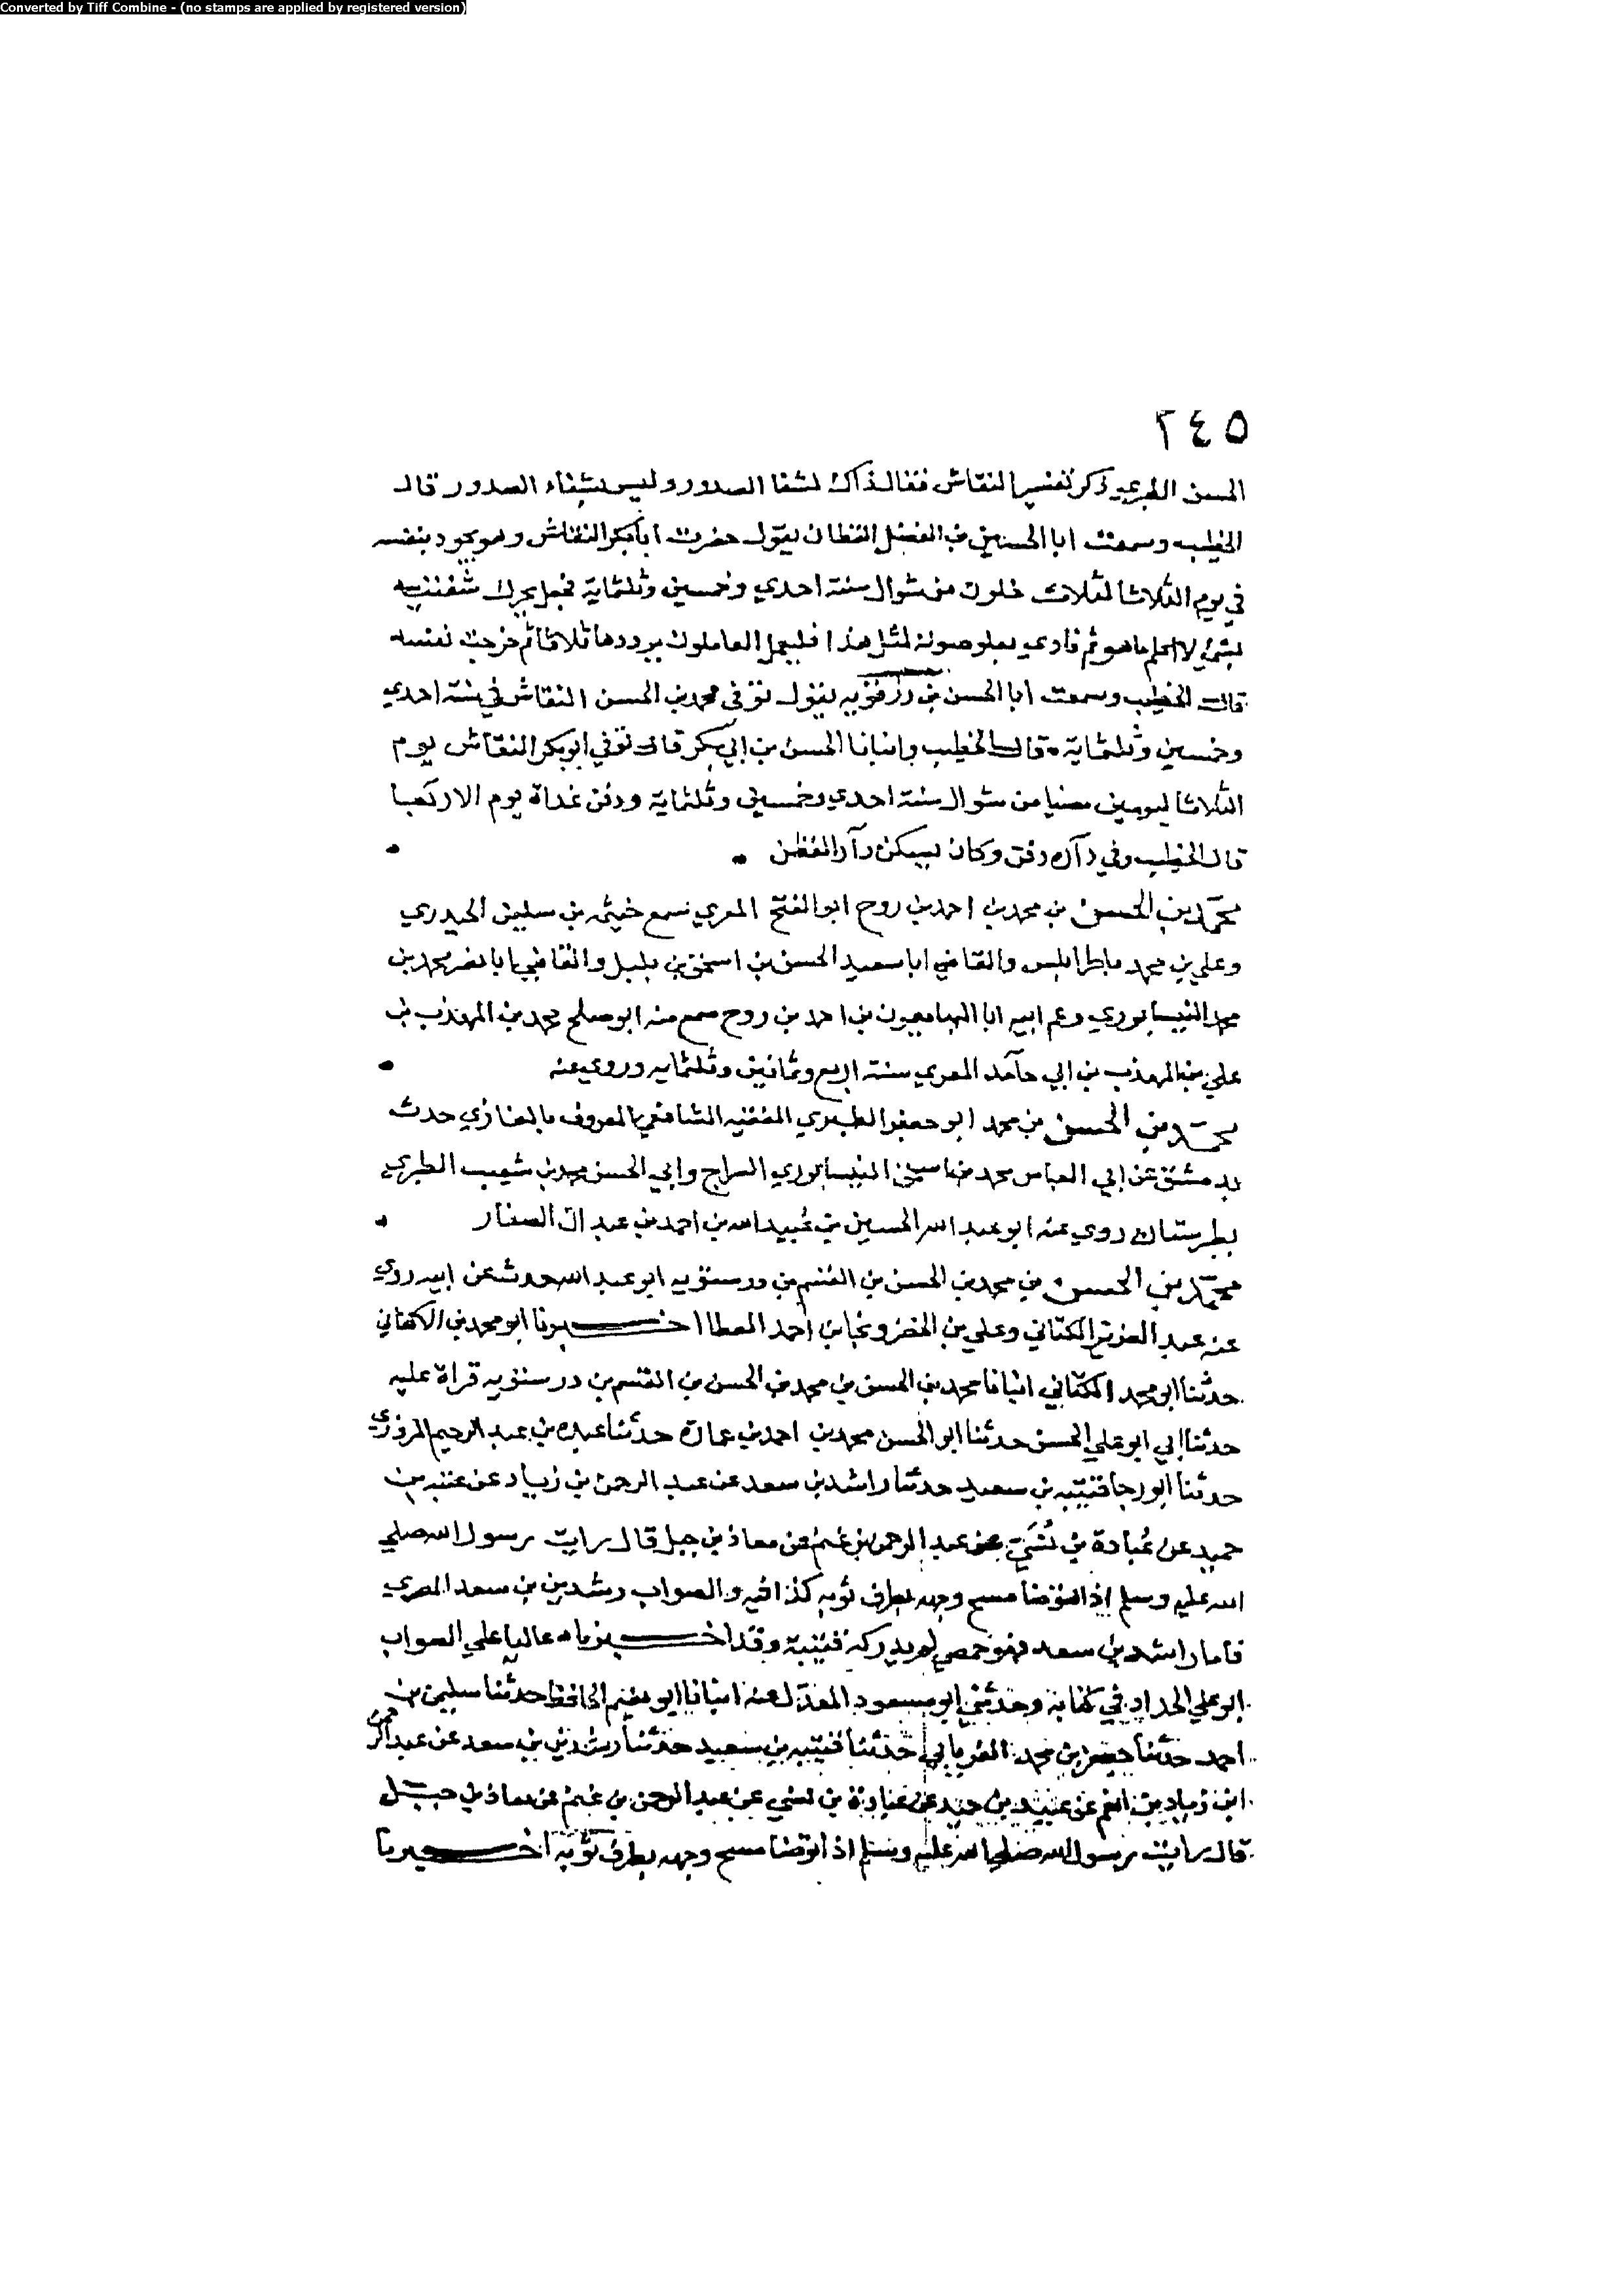 Converted by Tiff Combine - (no stamps are applied by registered version)
٢٤٥
الحسن الطبري ذكر تفسير النقاش فقال ذاك اشفا الصدور وليس بشفاء الصدور قال
الخطيب وسمعت ابا الحسين بن الفضل القطان يقول حضرت ابا بكر النقاش وهو يجود بنفسه
في يوم الثلاثا لثلاث خلون من شوال سنة احدي وخمسين وثلثماية فجعل يحرك شفتيه
بشئ لا اعلم ما هو ثم نادي بعلو صوته لمثل هذا فليعمل العاملون يرددها ثلاثا ثم خرجت نفسه
قال الخطيب وسمعت ابا الحسن بن رزقويه يقول توفي محمد بن الحسن النقاش في سنة احدي
وخمسين وثلثماية قال الخطيب وانبانا الحسن بن ابي بكر قال توفي ابو بكر النقاش يوم
الثلاثا ليومين مضيا من شوال سنة احدي وخمسين وثلثماية ودفن غداة يوم الاربعا
قال الخطيب وفي داره دفن وكان يسكن دار القطن
محمد بن الحسن بن محمد بن احمد بن روح ابو الفتح المعري سمع خيثمة بن سليمن الحيدري
وعلي بن محمد باطرابلس والقاضي ابا سعيد الحسن بن اسحق بن بلبل والقاضي ابا نصر محمد بن
محمد النيسابوري وعم ابيه ابا الهيا ميمون بن احمد بن روح سمع منه ابو صلح محمد بن المهذب بن
علي بن المهذب بن ابي حامد المعري سنة اربع وثمانين وثلثمايه وروي عنه
محمد بن الحسن بن محمد ابو جعفر الطبري الفقيه الشافعي المعروف بالغازي حدث
بدمشق عن ابي العباس محمد بن اسحق النيسابوري السراج وابي الحسن محمد بن شعيب الطبري
بطبرستان روي عنه ابو عبد الله الحسين بن عبيد الله بن احمد بن عبدان الصفار
محمد بن الحسن بن محمد بن الحسن بن القسم بن درستويه ابو عبد الله حدث عن ابيه روي
عنه عبد العزيز الكتاني وعلي بن الخضر ونجا بن احمد العطا اخبرنا ابو محمد بن الاكفاني
حدثنا ابو محمد الكتاني انبانا محمد بن الحسن بن محمد بن الحسن بن القسم بن درستويه قراة عليه
حدثنا ابي ابو علي الحسن حدثنا ابو الحسن محمد بن احمد بن عمارة حدثنا عبده بن عبد الرحيم المروزي
حدثنا ابو رجا قتيبه بن سعيد حدثنا راشد بن سعد عن عبد الرحمن بن زياد عن عتبه بن
حميد عن عُبادة بن نُسَيّ عن عبد الرحمن بن غنم عن معاذ بن جبل قال رايت رسول الله صلي
الله عليه وسلم اذا توضا مسح وجهه بطرف ثوبه كذا فيه والصواب رشدين بن سعد المصري
فاما راشد بن سعد فهو حمصي لم يدركه قتيبة وقد اخبرناه عاليا علي الصواب
ابو علي الحداد في كتابه وحدثني ابو مسعود المعدل عنه انبانا ابو نعيم الحافظ حدثنا سليمن بن
احمد حدثنا جعفر بن محمد الفريابي حدثنا قتيبه بن سعيد حدثنا رشدين بن سعد عن عبد الرحمن
ابن زياد بن انعم عن عتبة بن حميد عن عبادة بن نسي عن عبد الرحمن بن غنم عن معاذ بن جبل
قال رايت رسول الله صلي الله عليه وسلم اذا توضا مسح وجهه بطرف ثوبه اخبرنا